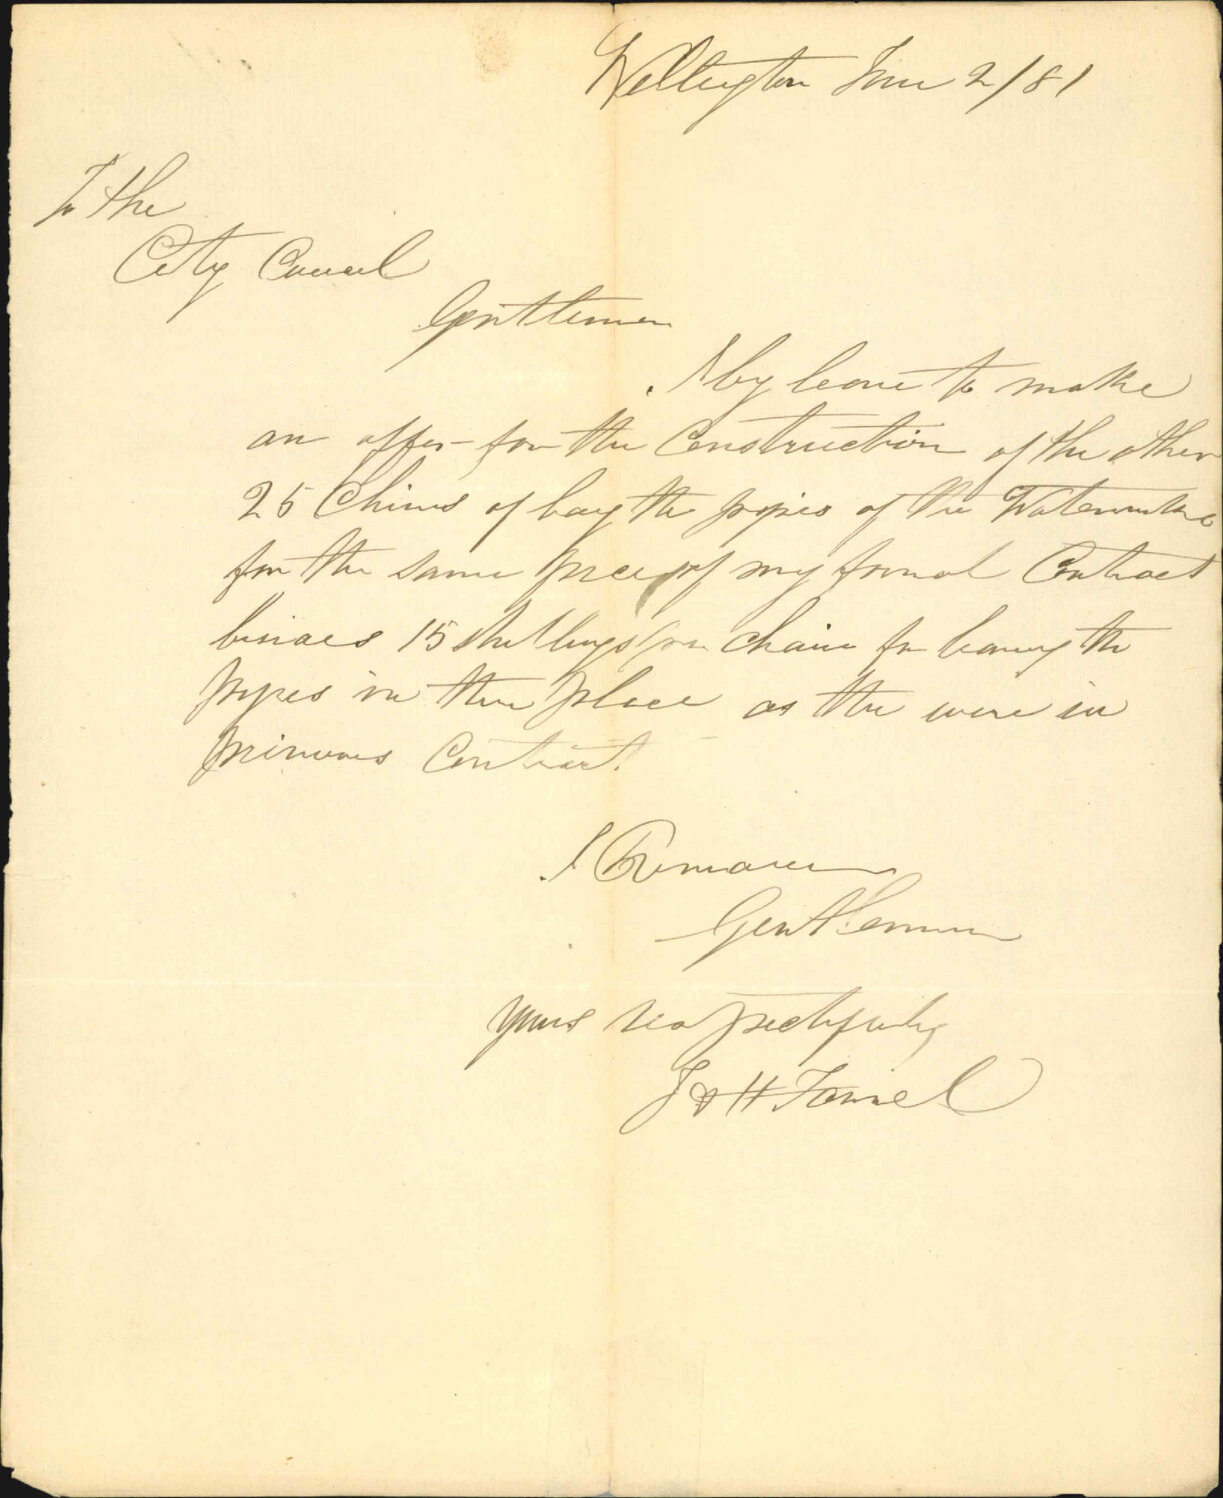 Wellington June 2/81
To the
City Council
Gentlemen
I beg leave to make
an offer for the Construction of the other
25 Chains of the pipes of the
for the same price of my Contract
15 shillings per chain for the
pipes in there place as the were in
Contract.
I Remain
Gentlemen
yours respectfully